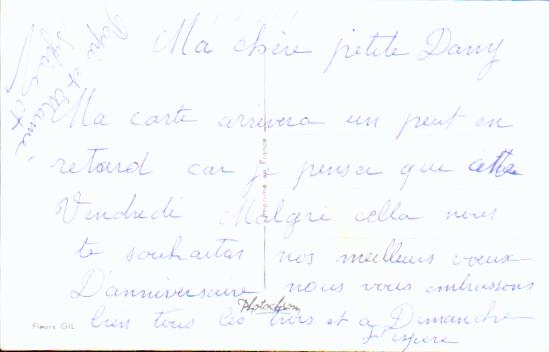 Ma chère petite Dany
Ma carte arrivera un peut en
retard car je penser que
Vendredi Malgré cella nous
te souhaitas nos meilleurs voeux
D'anniversaire nous vous embrassons
bien tous les trois et a Dimanche
j'espere
Papi et Mamé
Imprimé en France
Photochrom
Fleurs GIL